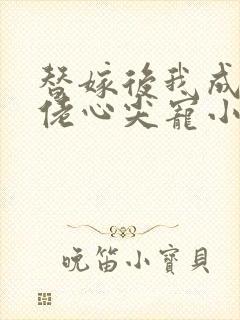 替嫁後我成
佬心尖寵小
晚笛小寶貝